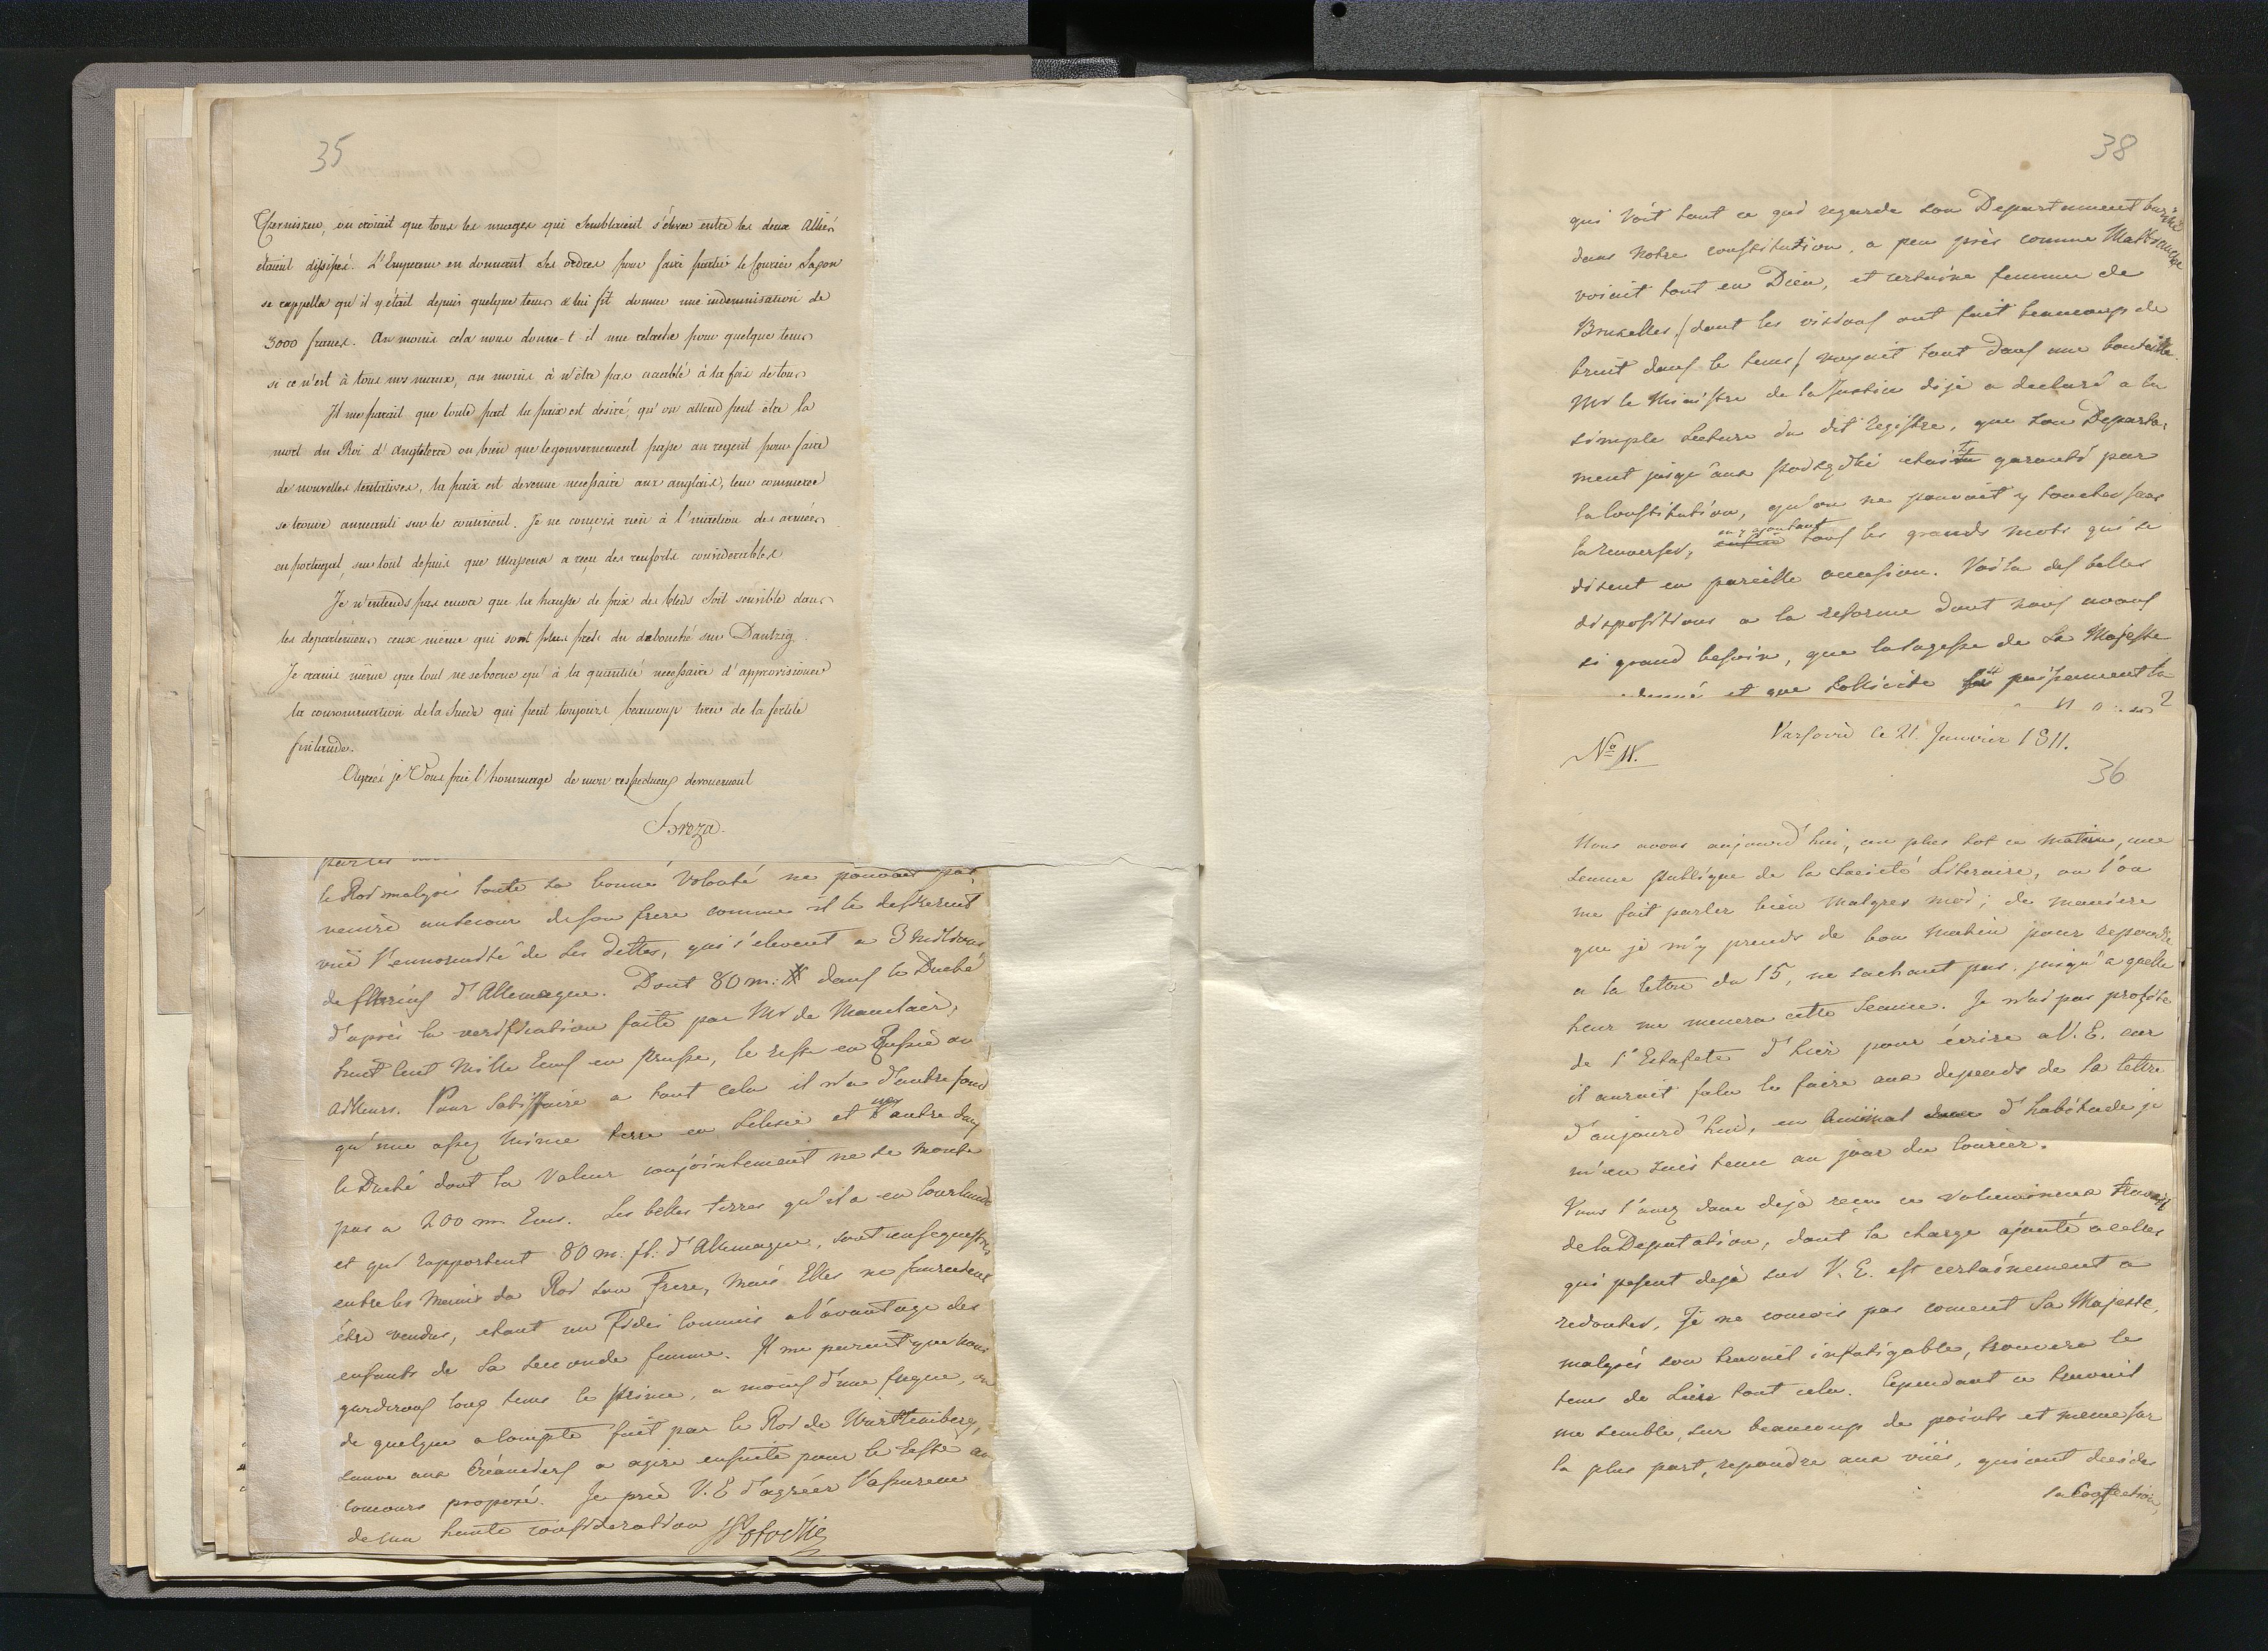 35
Czerniszew, on croiait que tous les nuages qui semblaient s'élever entre les deux Alliés
etaient dissipés. L'Empereur en donnant ses ordres pour faire partir le Courier Saxon
se rappella qu'il y était depuis quelque tems & lui fit donner une indemnisation de
3000 francs. Au moins cela nous donne-t-il une relache pour quelque tems
si ce n'est à tous nos maux, au moins à n'être pas accablé à la fois de tous
Il me parait que toute part la paix est desiré, qu'on attend peut être la
mort du Roi d'Angleterre ou bien que le gouvernement passe au regent pour faire
de nouvelles tentatives, la paix est devenue necessaire aux anglais, leur commerce
se trouve aneanti sur le continent. Je ne conçois rien à l'inaction des armées
en portugal, sur tout depuis que Massena a reçu des renforts considerables
Je n'entends pas encore que la hausse de prix des bleds soit sensible dans
les departemens ceux même qui sont plus près du debouché sur Dantzig.
Je crains même que tout ne se borne qu'à la quantité necessaire d'approvisioner
la consommation de la Suede qui peut toujours beaucoup tirer de la fertile
finlande.
Agréés je Vous prie l'hommage de mon respectueux devouement
Breza.
le Roi malgré toute sa bonne volonté ne pouvait pas
venire au secour de son frere comme il le desirerait
vüe l'ennormité de ses dettes, qui s'elevent a 3 millions
de florins d'Allemagne. Dont 80 m: # dans le Duché
d'après la verification faite par Mr de Mauclair,
huit cent mille Ecus en Prusse, le reste en Russie ou
ailleurs. Pour satisffaire a tout cela il n'a d'autre fond
qu'une assez mince terre en Silesie et une autre dans
le Duché dont la valeur conjointement ne se monte
pas a 200 m Ecus. Les belles terres qu'il a en Courlande
et qui rapportent 80 m: fl: d'Allemagne, sont ensequestrés
entre les mains du Roi son Frere, mais Elles ne sauraient
être vendus, etant un Fidei Commis a l'avantage des
enfants de sa seconde femme. Il me parait que nous
garderons long tems le prince, a moins d'une fugue, ou
de quelque a Compte fait par le Roi de Wurttemberg,
sauve aux Créanciers a agire ensuite pour le reste au
concours proposé. Je prie V. E d'agréer l'assurence
de ma haute consideration SPotocki
38
qui voit tout ce qui regarde son Departement
dans notre constitution, a peu près comme Malbranche
voiait tout en Dieu, et certaine femme de
Bruxelles /dont les visions ont fait beaucoup de
bruit dans le tems/ voyait tout dans une bouteille.
Mr le Ministre de la Justice dejà a declaré a la
simple lecture du dit Registre, que son Departe-
ment jusqu'aux podsędki etait garanti par
la Constitution, qu'on ne pouvait y toucher sans
la renverser, en y ajoutant tous les grands mots qui se
disent en pareille occasion. Voila des belles
dispositions a la reforme dont nous avons
si grand besoin, que la sagesse de Sa Majeste
et que sollicite si puissament la
No 11. Varsovie ce 21. Janvier 1811.
36
Nous avons aujourd'hui, au plus tot ce matin, une
seance publique de la Societé Literaire, ou l'on
me fait parler bien malgres moi; de maniere
que je m'y prends de bon matin pour repondre
a la lettre du 15, ne sachant pas jusqu'a quelle
heur me menera cette seance. Je n'ai pas profité
de l'Estafete d'hier pour écrire a V. E. car
il aurait falu le faire aux depends de la lettre
d'aujourd'hui, en animal d'habitude je
m'en suis tenu au jour du Courier.
Vous l'avez donc dejà reçu ce volumineux travail
de la Deputation, dont la charge ajouté a celles
qui pesent dejà sur V. E. est certainement a
redouter. Je ne concois pas coment Sa Majeste,
malgrés son travail infatigable, trouvera le
tems de lire tout cela. Cependant ce travail
me semble, sur beaucoup de points et meme sur
la plus part, repondre aux vües, qui ont decidés
la Confection,